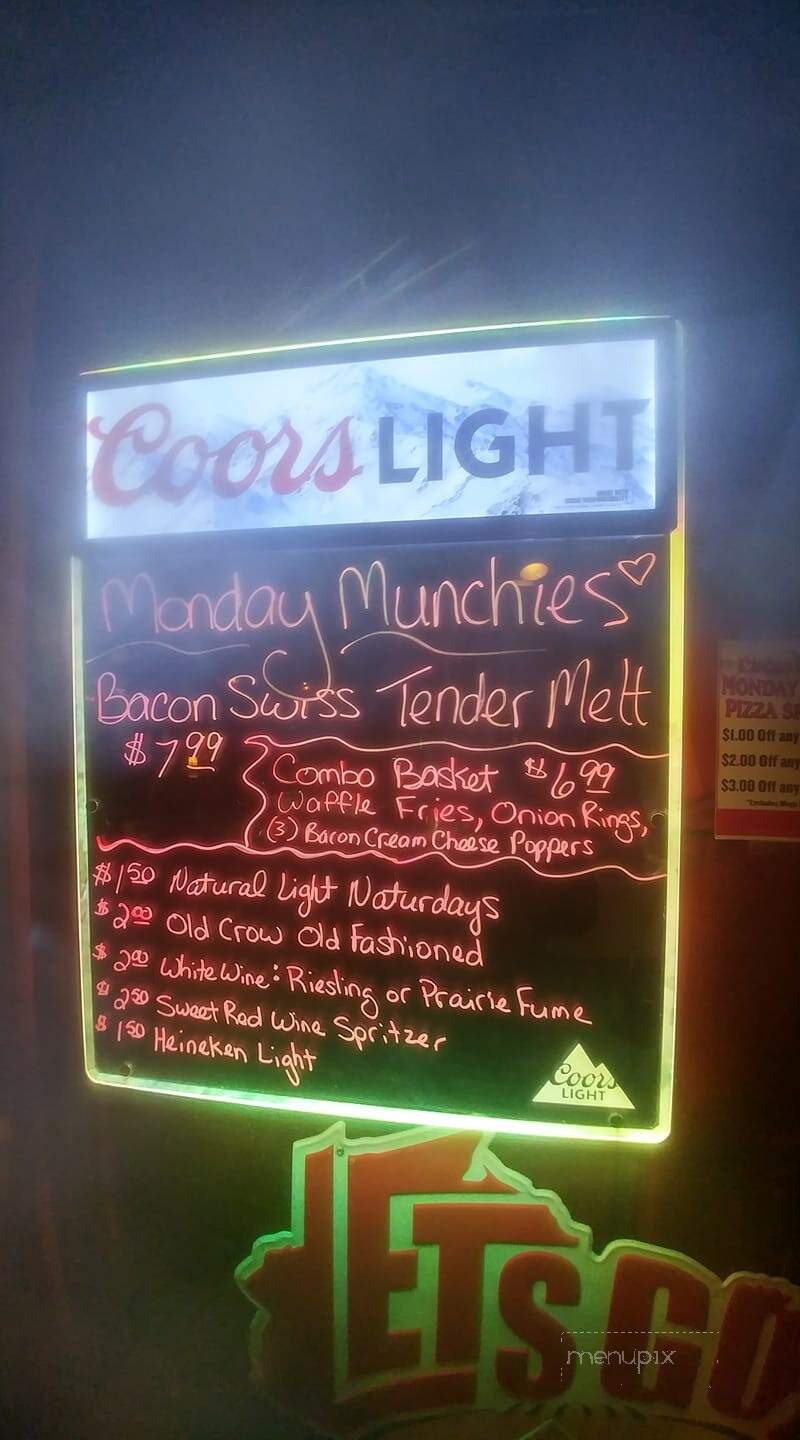 Coors LIGHT
Monday Munchies
Bacon Swiss Tender Melt
$7.99
Combo Basket $6.99
Waffle Fries, Onion Rings,
(3) Bacon Cream Cheese Poppers
$1.50 Natural Light Naturdays
$2.00 Old Crow Old Fashioned
$2.00 White Wine: Riesling or Prairie Fume
$2.50 Sweet Red Wine Spritzer
$1.50 Heineken Light
Coors
LIGHT
MONDAY
PIZZA
$1.00 Off any
$2.00 Off any
$3.00 Off any
LETS GO
menupix